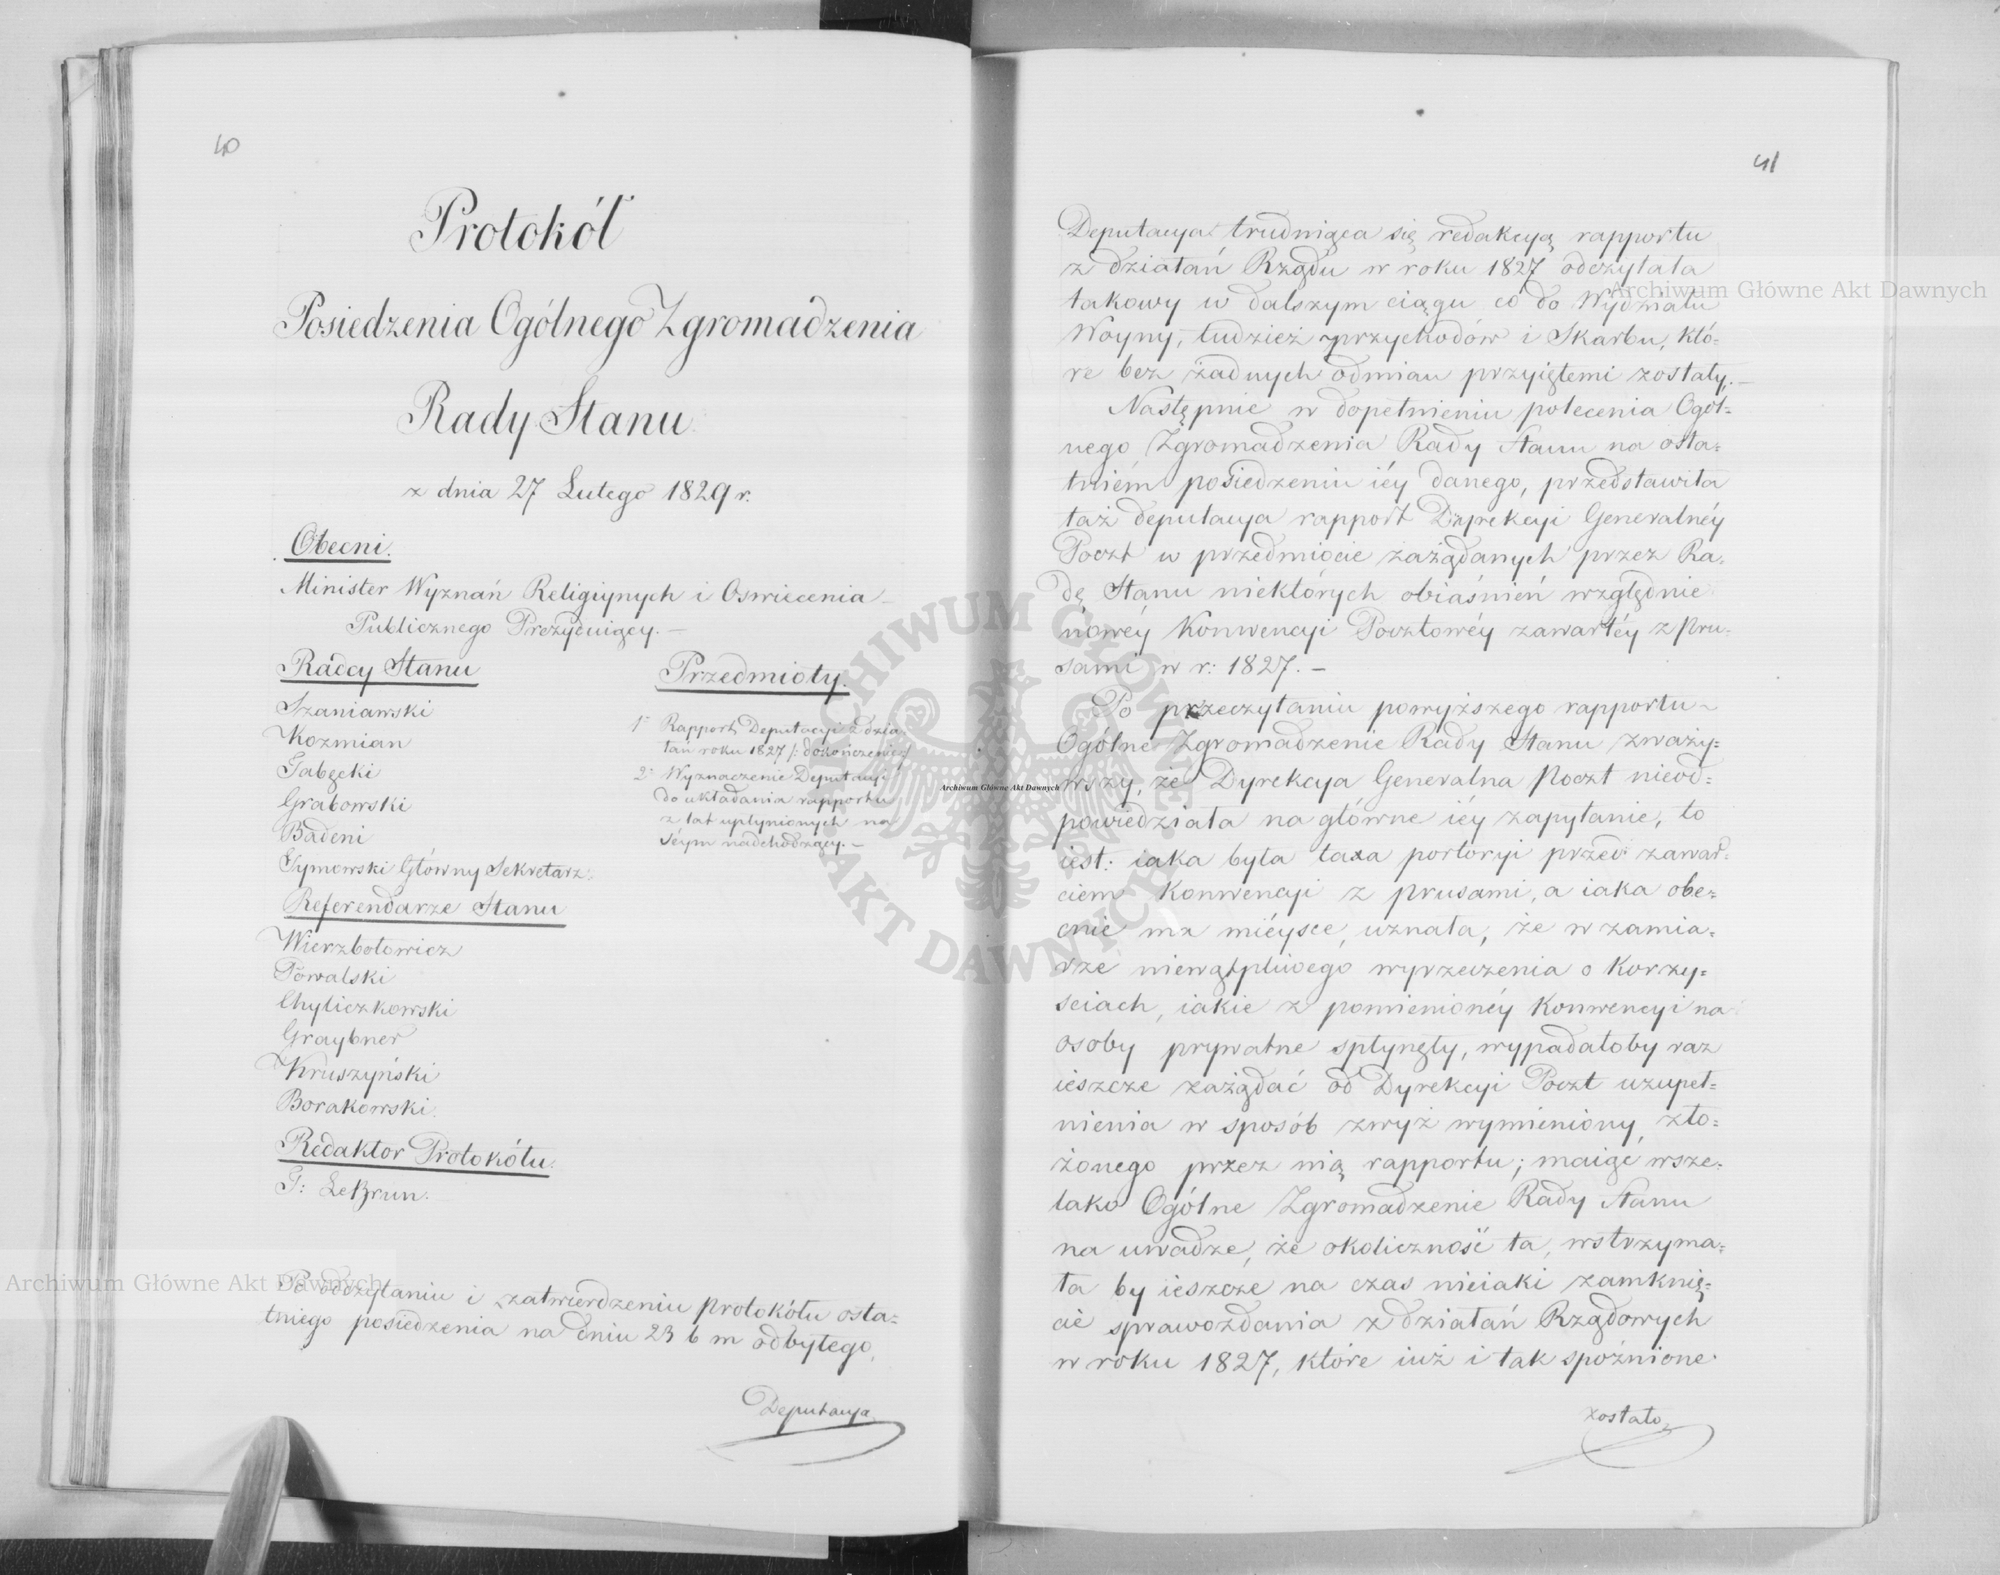 40
Protokół
Posiedzenia Ogólnego Zgromadzenia
Rady Stanu
z dnia 27 Lutego 1829 r.
Obecni.
Minister Wyznań Religijnych i Oswiecenia
Publicznego Prezyduiący. —
Radcy Stanu
Szaniawski
Kozmian
Grabowski
Badeni
Tymowski Główny Sekretarz.
Referendarze Stanu
Wierzbołowicz
Powalski
Chyliczkowski
Graybner
Kruszyński
Borakowski.
Redaktor Protokółu.
G: LeBrun.
Przedmioty.
1° Rapport Deputacyi z dzia-
łań roku 1827 /: dokończenie:/
2° Wyznaczenie Deputacyi
do układania rapportu
z lat upłynionych na
Séym nadchodzący. —
Po odczytaniu i zatwierdzeniu protokółu osta=
tniego posiedzenia na dniu 23 b m odbytego,
Deputacya
41
Deputacya trudniąca się redakcyą rapportu
z działań Rządu w roku 1827 odczytała
takowy w dalszym ciągu co do Wydziału
Woyny, tudzież przychodów i Skarbu, któ=
re bez żadnych odmian przyiętemi zostały. —
Następnie w dopełnieniu polecenia Ogól=
nego Zgromadzenia Rady Stanu na osta=
tniém posiedzeniu iéy danego, przedstawiła
taż deputacya rapport Dyrekcyi Generalnéy
Poczt w przedmiocie zażądanych przez Ra=
dę Stanu niektórych obiaśnień względnie
nowéy Konwencyi Pocztowéy zawartéy z Pru=
sami w r: 1827. —
Po przeczytaniu powyższego rapportu
Ogólne Zgromadzenie Rady Stanu zważy=
wszy, że Dyrekcya Generalna Poczt nieod=
powiedziała na główne iéy zapytanie, to
iest: iaka była taxa portoryi przed zawar=
ciem Konwencyi z prusami, a iaka obe=
cnie ma miéysce, uznała, że w zamia=
rze niewątpliwego wyrzeczenia o korzy=
sciach, iakie z pomienionéy Konwencyi na
osoby prywatne spłynęły, wypadałoby raz
ieszcze zażądać od Dyrekcyi Poczt uzupeł=
nienia w sposób zwyż wymieniony, zło=
żonego przez nią rapportu; maiąc wsze=
lako Ogólne Zgromadzenie Rady Stanu
na uwadze, że okoliczność ta, wstrzyma=
ła by ieszcze na czas nieiaki zamknię=
cie sprawozdania z działań Rządowych
w roku 1827, które iuż i tak spóźnione
zostało
Archiwum Główne Akt Dawnych
Archiwum Główne Akt Dawnych
Archiwum Główne Akt Dawnych
ARCHIWUM GŁÓWNE AKT DAWNYCH